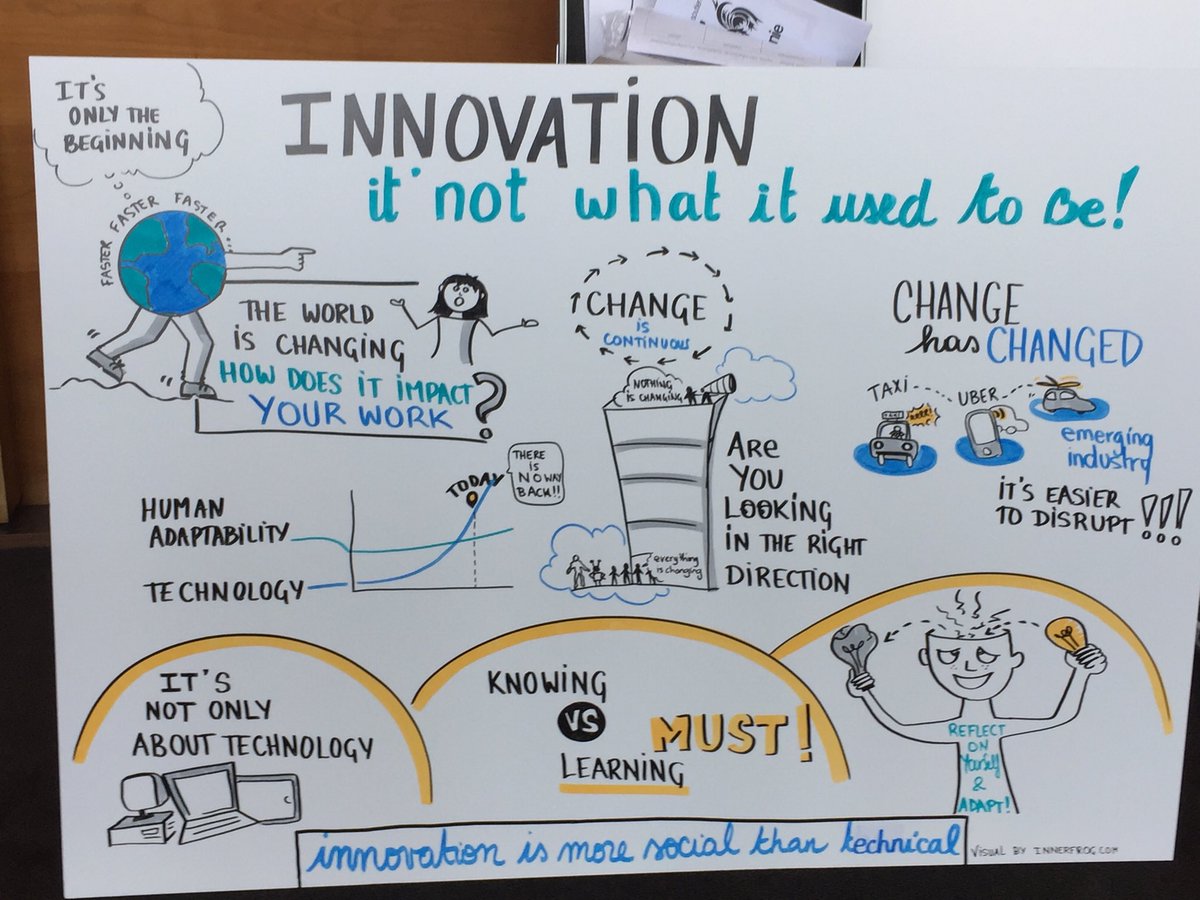 nie
IT'S
ONLY THE
BEGINNING
INNOVATION
it' not what it used to Be!
FASTER FASTER FASTER...
THE WORLD
IS CHANGING
HOW DOES IT IMPACT
YOUR WORK ?
CHANGE
is
CONTINUOUS
NOTHING
IS CHANGING
ARE
YOU
LOOKING
IN THE RIGHT
DIRECTION
everything
is changing
CHANGE
has CHANGED
TAXI
UBER
TAXI
emerging
industry
IT'S EASIER
TO DISRUPT !!!
HUMAN
ADAPTABILITY
TECHNOLOGY
TODAY
THERE
IS
NO WAY
BACK!!
IT'S
NOT ONLY
ABOUT TECHNOLOGY
KNOWING
VS
LEARNING
MUST!
REFLECT
ON
Yourself
&
ADAPT!
innovation is more social than technical
VISUAL BY INNERFROG.COM